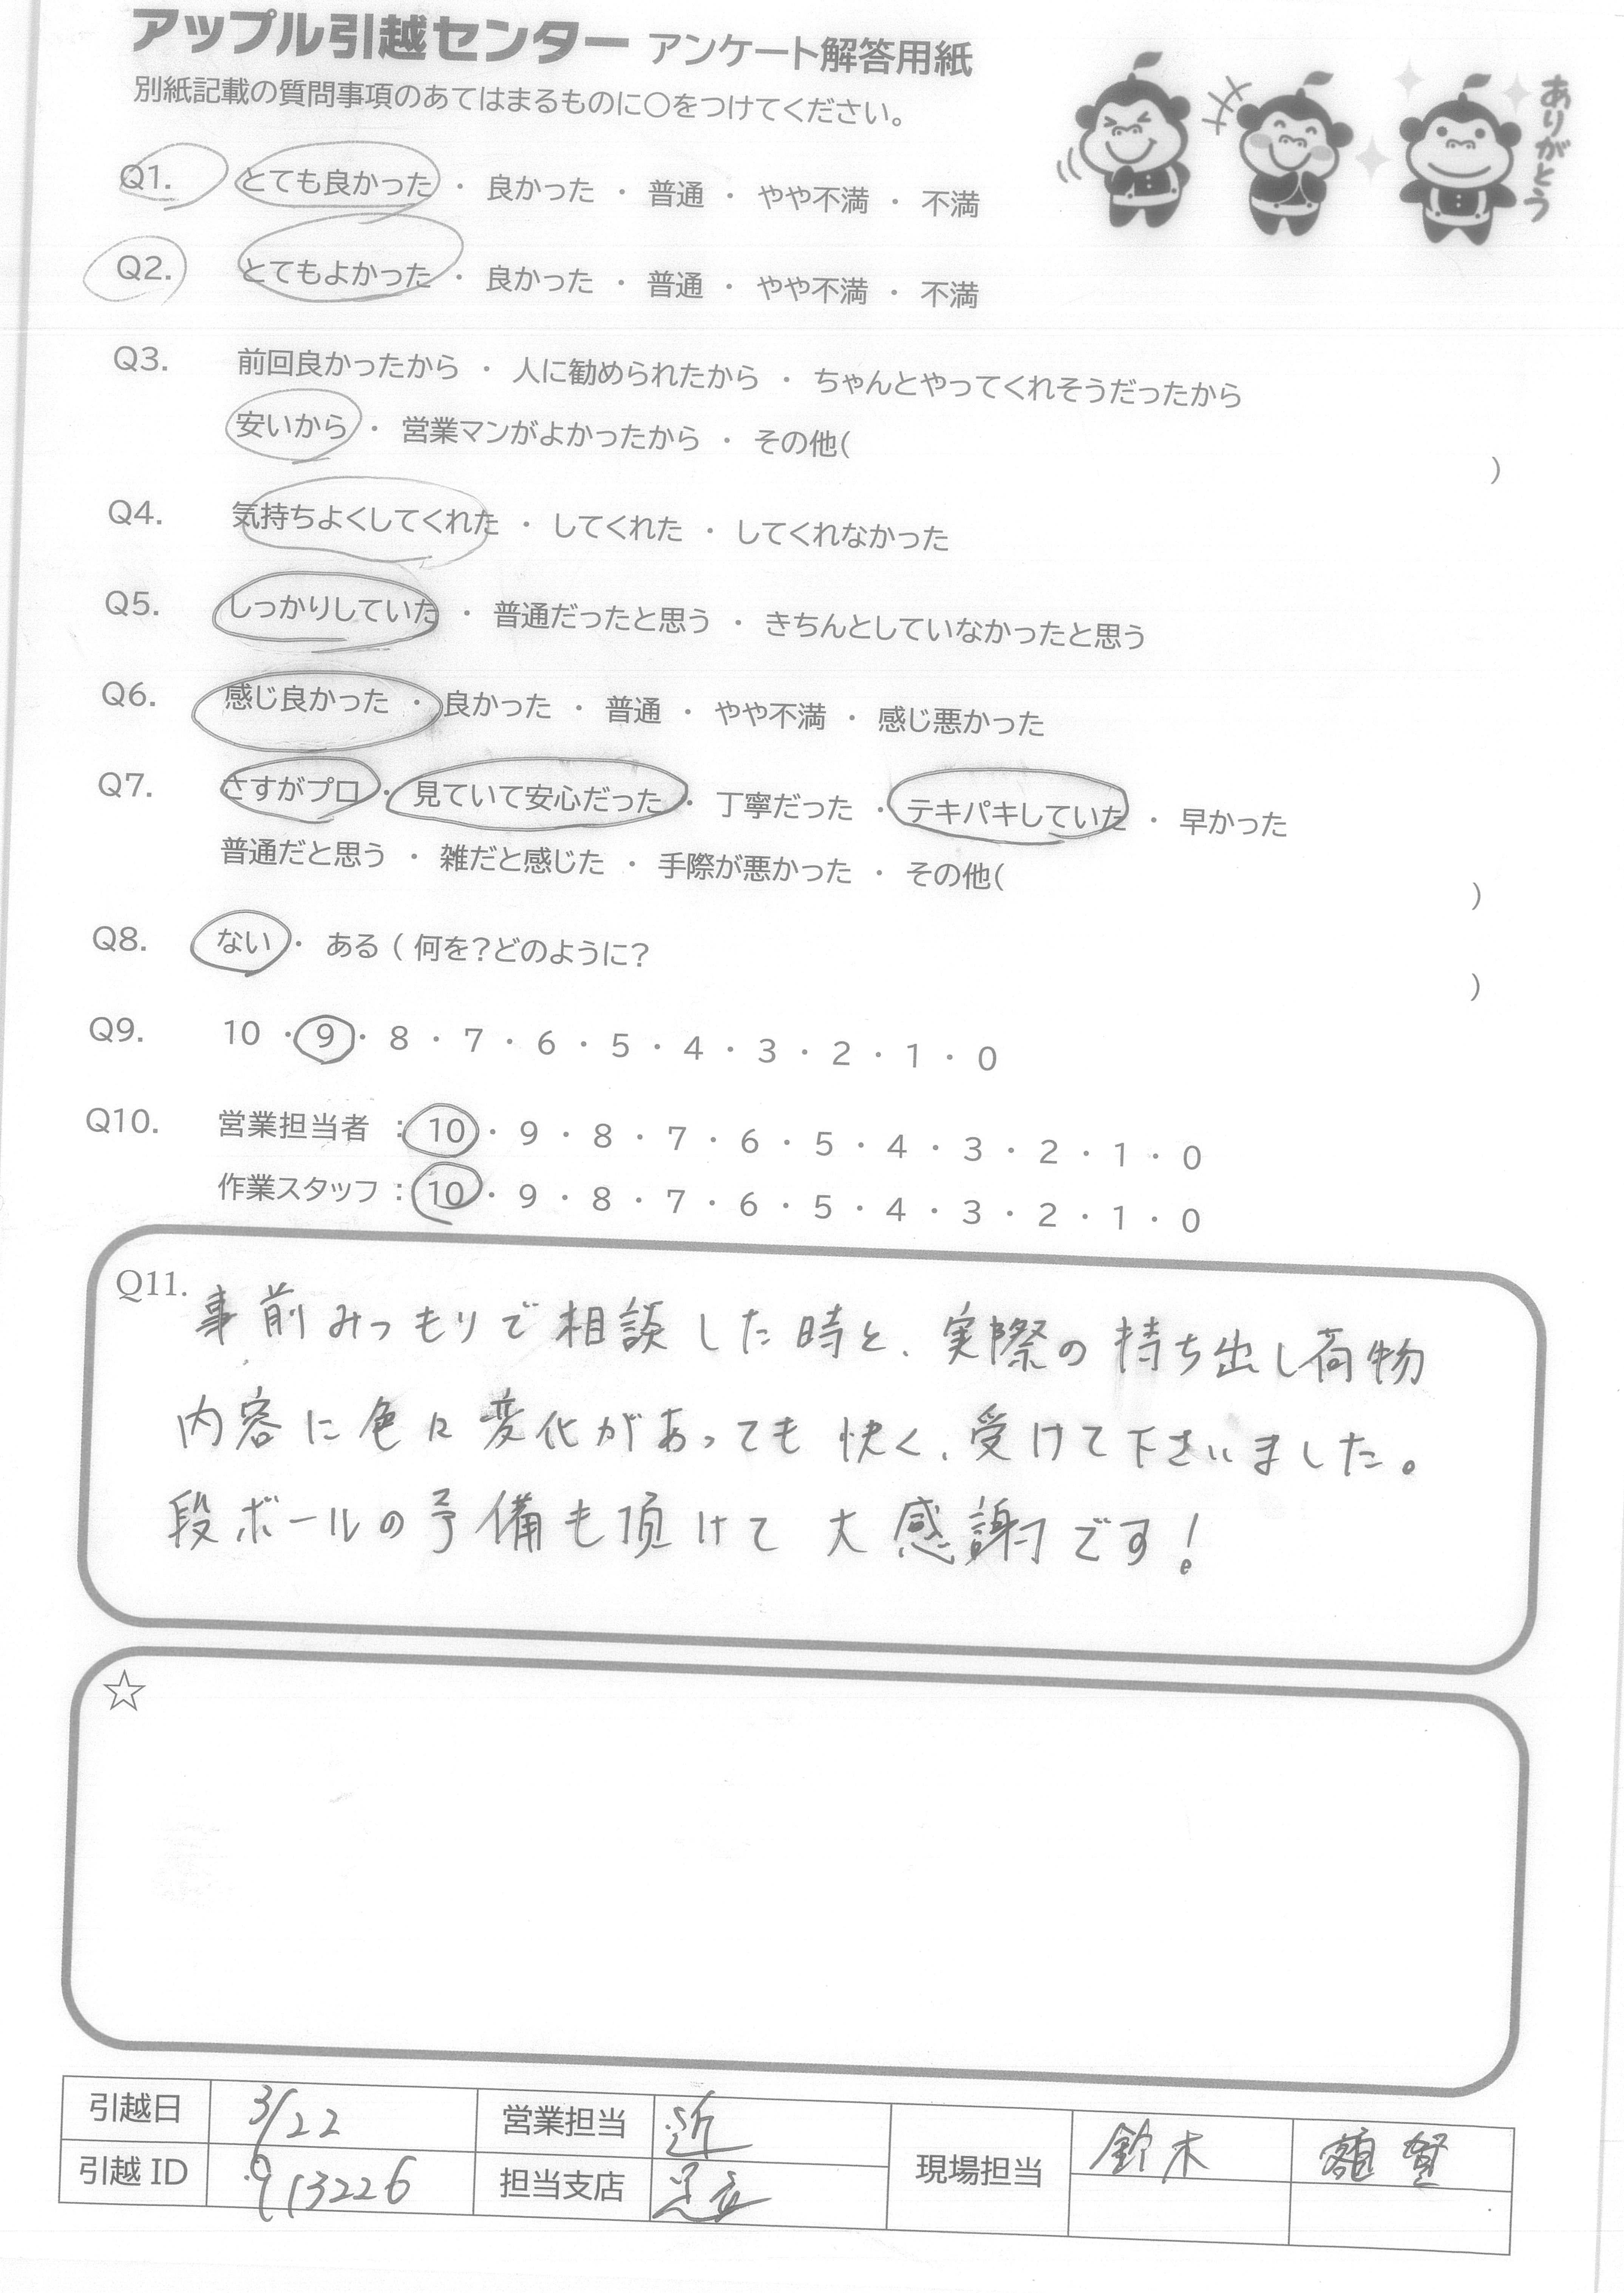 アップル引越センター アンケート解答用紙
別紙記載の質問事項のあてはまるものに○をつけてください。
ありがとう
Q1. とても良かった ・ 良かった ・ 普通 ・ やや不満 ・ 不満
Q2. とてもよかった ・ 良かった ・ 普通 ・ やや不満 ・ 不満
Q3. 前回良かったから ・ 人に勧められたから ・ ちゃんとやってくれそうだったから
安いから ・ 営業マンがよかったから ・ その他( )
Q4. 気持ちよくしてくれた ・ してくれた ・ してくれなかった
Q5. しっかりしていた ・ 普通だったと思う ・ きちんとしていなかったと思う
Q6. 感じ良かった ・ 良かった ・ 普通 ・ やや不満 ・ 感じ悪かった
Q7. さすがプロ ・ 見ていて安心だった ・ 丁寧だった ・ テキパキしていた ・ 早かった
普通だと思う ・ 雑だと感じた ・ 手際が悪かった ・ その他( )
Q8. ない ・ ある ( 何を?どのように? )
Q9. 10 ・ 9 ・ 8 ・ 7 ・ 6 ・ 5 ・ 4 ・ 3 ・ 2 ・ 1 ・ 0
Q10. 営業担当者 : 10 ・ 9 ・ 8 ・ 7 ・ 6 ・ 5 ・ 4 ・ 3 ・ 2 ・ 1 ・ 0
作業スタッフ : 10 ・ 9 ・ 8 ・ 7 ・ 6 ・ 5 ・ 4 ・ 3 ・ 2 ・ 1 ・ 0
Q11. 事前みつもりで相談した時と、実際の持ち出し荷物
内容に色々変化があっても快く、受けて下さいました。
段ボールの予備も頂けて大感謝です!
☆
引越日 3/22 営業担当 近 現場担当 鈴木
引越 ID 9113226 担当支店 足立